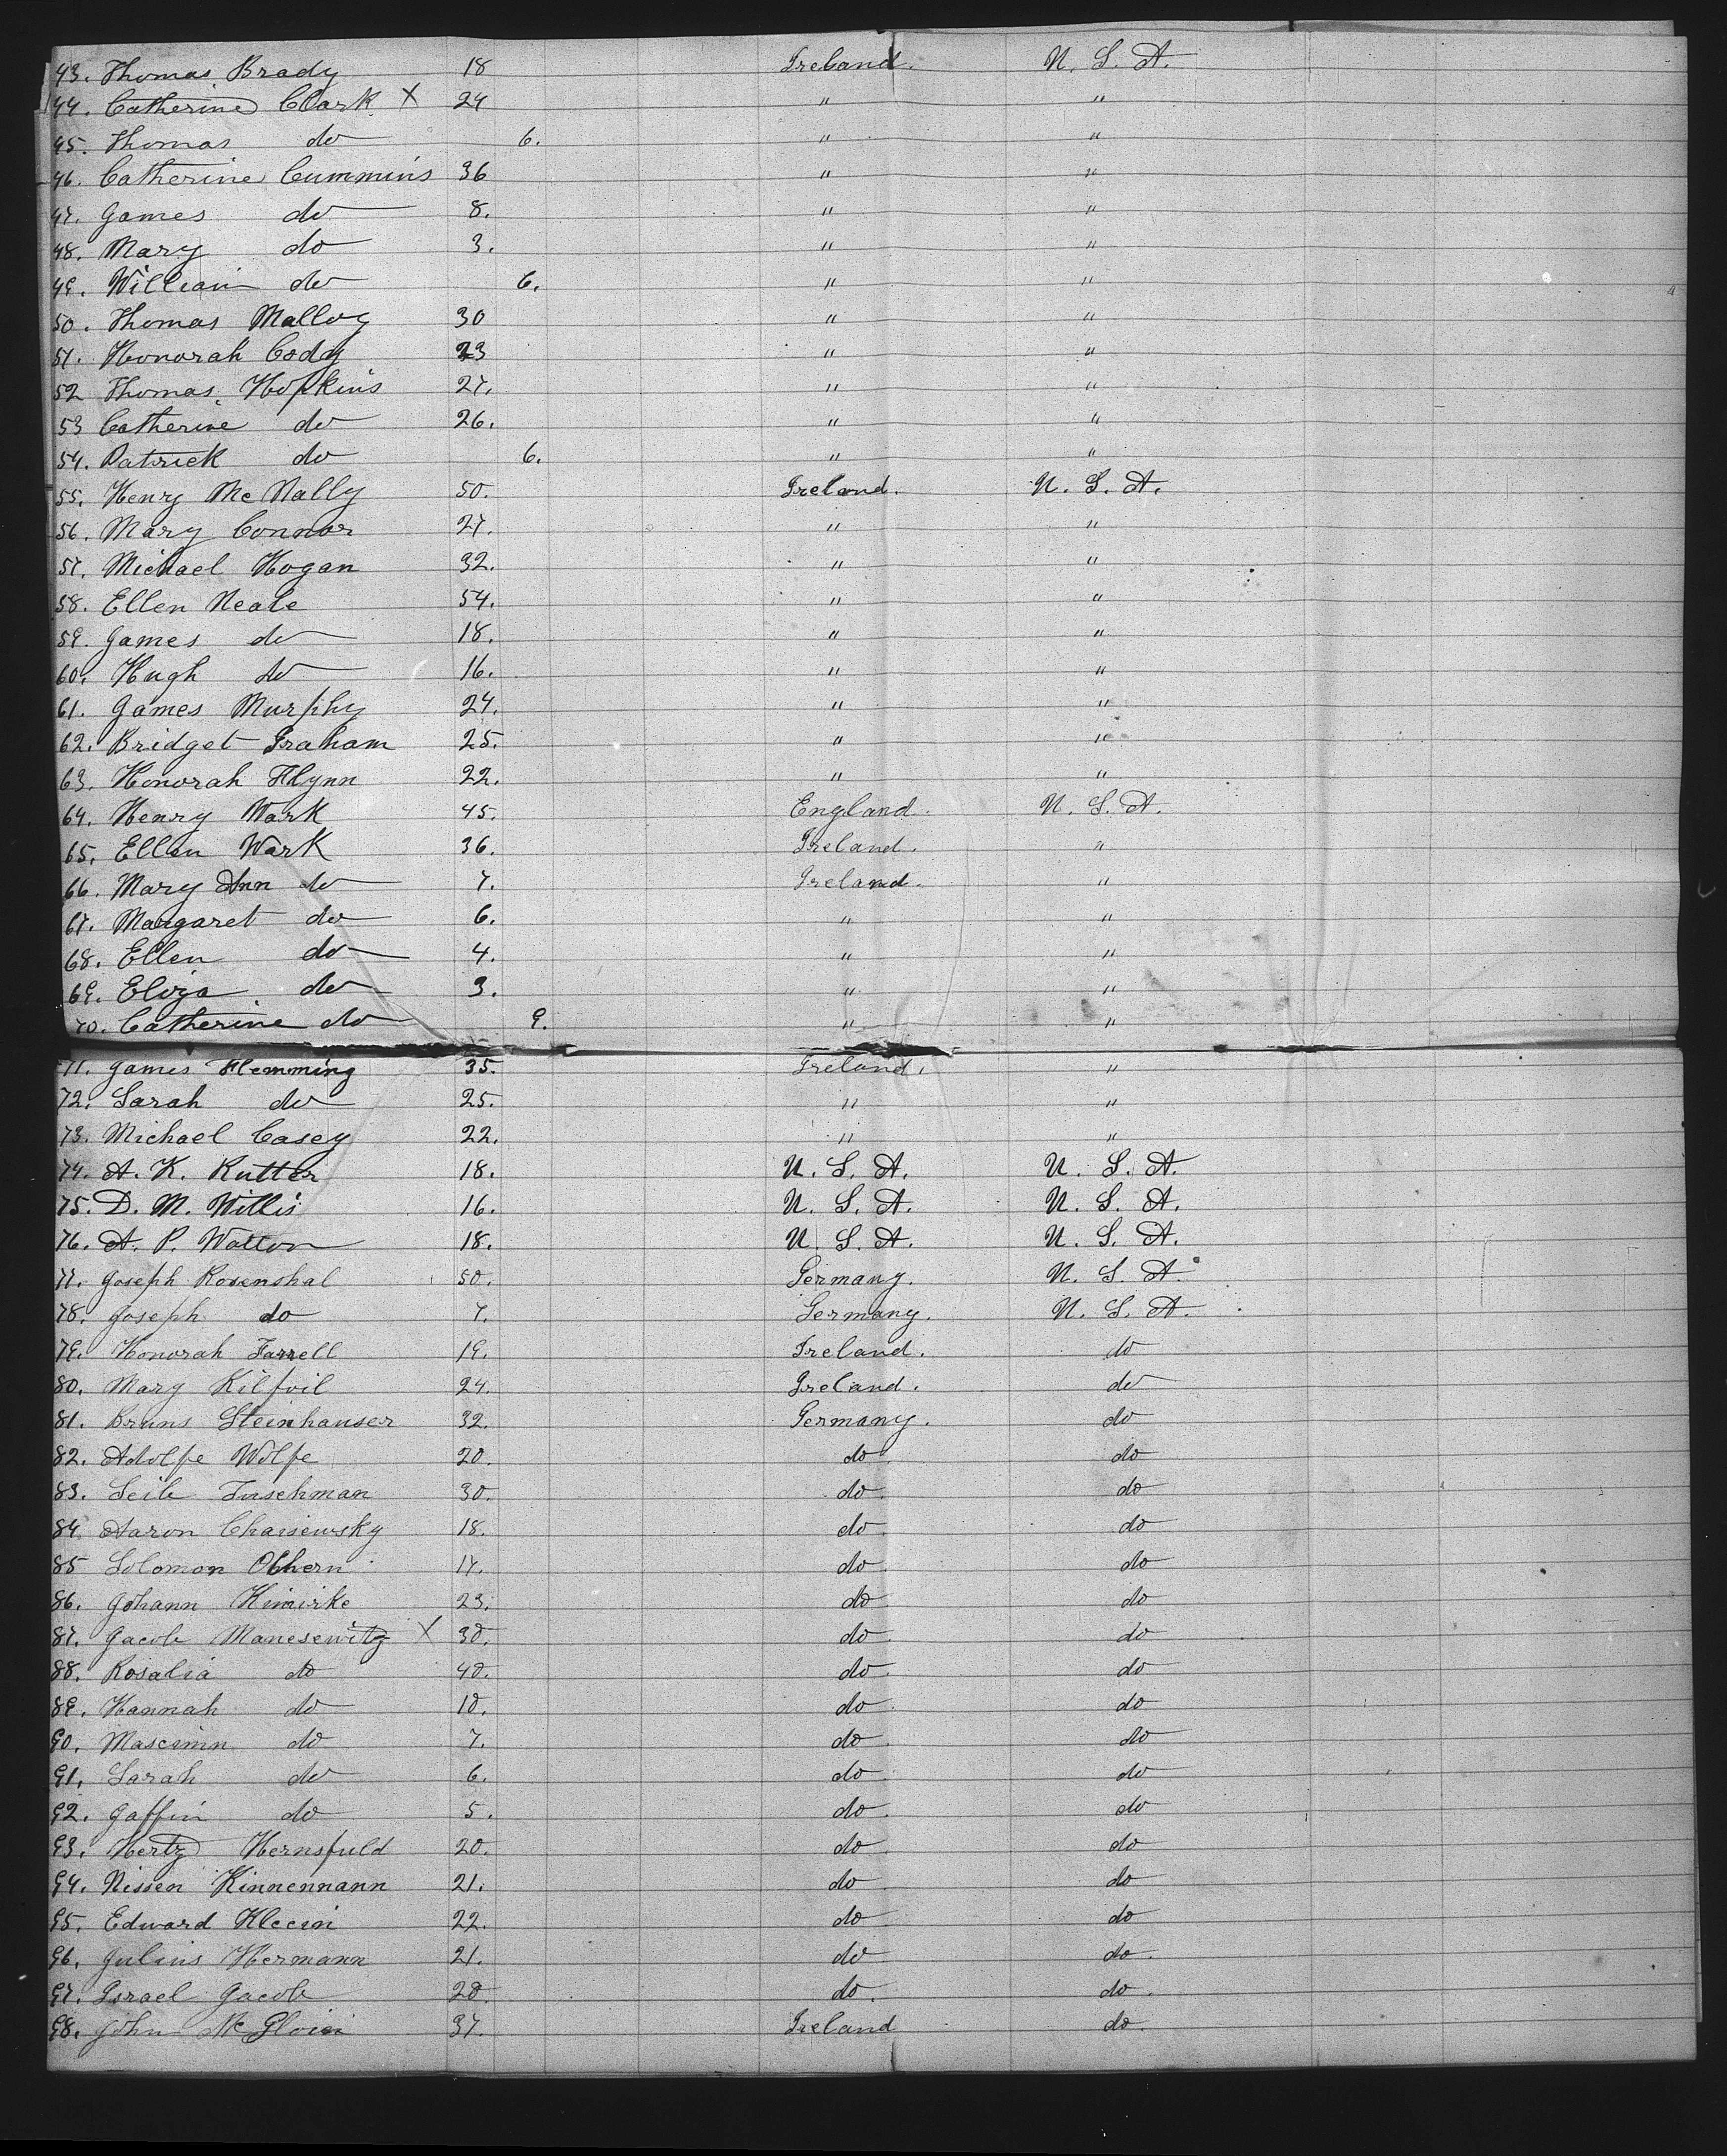 43. Thomas Brady 18 Ireland. U. S. A.
44. Catherine Clark X 24 " "
45. Thomas do 6. " "
46. Catherine Cummins 36 " "
47. James do 8. " "
48. Mary do 3. " "
49. William do 6. " "
50. Thomas Malloy 30 " "
51. Honorah Cody 23 " "
52 Thomas Hopkins 27. " "
53 Catherine do 26. " "
54. Patrick do 6. " "
55. Henry Mc Nally 50. Ireland. U. S. A.
56. Mary Connor 27. " "
57. Michael Hogan 32. " "
58. Ellen Neale 54. " "
59. James do 18. " "
60. Hugh do 16. " "
61. James Murphy 24. " "
62. Bridget Graham 25. " "
63. Honorah Flynn 22. " "
64. Henry Wark 45. England. U. S. A.
65. Ellen Wark 36. Ireland. "
66. Mary Ann do 7. Ireland. "
67. Margaret do 6. " "
68. Ellen do 4. " "
69. Eliza do 3. " "
70. Catherine do 9. " "
71. James Flemming 35. Ireland. "
72. Sarah do 25. " "
73. Michael Casey 22. " "
74. A. K. Rutter 18. U. S. A. U. S. A.
75. D. M. Willis 16. U. S. A. U. S. A.
76. A. P. Watton 18. U. S. A. U. S. A.
77. Joseph Rosenshal 50. Germany. U. S. A.
78. Joseph do 7. Germany. U. S. A.
79. Honorah Farrell 19. Ireland. do
80. Mary Kilfoil 24. Ireland. do
81. Bruns Steinhauser 32. Germany. do
82. Adolfe Wolfe 20. do do
83. Leib Tuschman 30. do. do
84. Aaron 18. do. do
85 Solomon 17. do. do
86. Johann Kimirke 23. do do
87. Jacob Manesewitz X 30. do. do
88. Rosalia do 40. do. do
89. Hannah do 10. do. do
90. Mascimn do 7. do. do
91. Sarah do 6. do. do
92. Jaffin do 5. do. do
93. Hertz Hernsfuld 20. do. do
94. Nissen Kinnennann 21. do. do
95. Edward Kleein 22. do. do
96. Julius Hermann 21. do do.
97. Israel Jacob 20. do. do.
98. John 37. Ireland do.